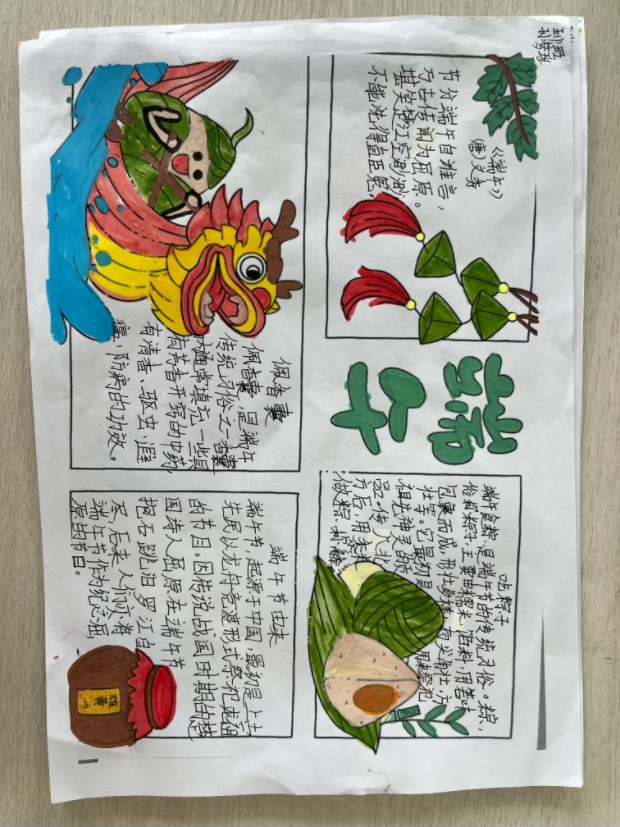 《端午》
(唐)文秀
节分端午自谁言,
万古传闻为屈原。
堪笑楚江空渺渺,
不能洗得直臣冤。
端午
吃粽子
端午食粽,是端午节的传统习俗。粽,
俗称粽子,主要由糯米、馅料,用箬叶
包裹而成,形状多样,有尖角状、方
状等。它最初是用来祭祀
祖先神灵的
品,传入北
方后,用黍米
做粽,称
佩香囊
佩香囊,是端午
传统习俗之一香囊
内通常填充一些具
有芳香开窍的中药,
有清香、驱虫、避
瘟、防病的功效。
端午节由来
端午节,起源于中国,最初是上古
先民以龙舟竞渡形式祭祀龙祖
的节日。因传说战国时期的楚
国诗人屈原在端午节
抱石跳汨罗江自
尽,后来人们亦将
端午节作为纪念屈
原的节日。
雄黄